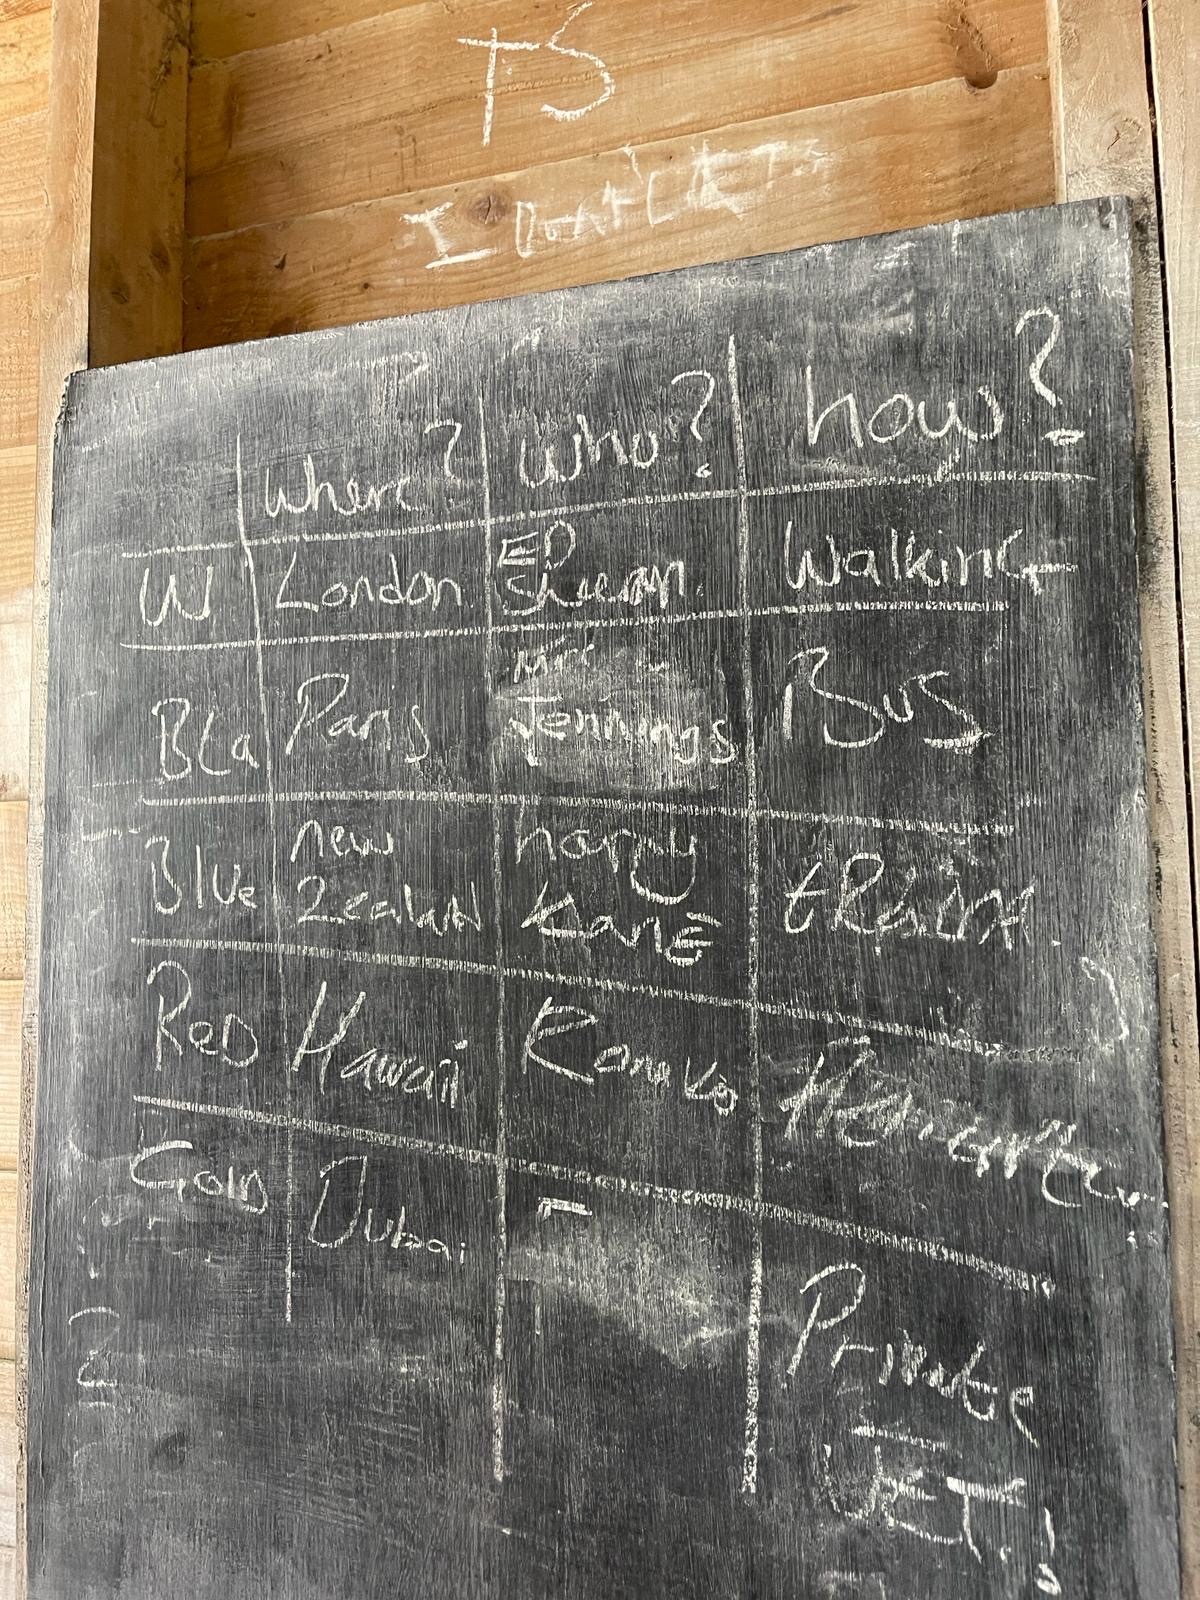 TS
I
where? who? how?
W London ED Sheeran. WalkinG
Bla Paris Mrs Jennings Bus
Blue new Zealand harry kanE tRain
ReD Hawaii
GolD Dubai Private JET!